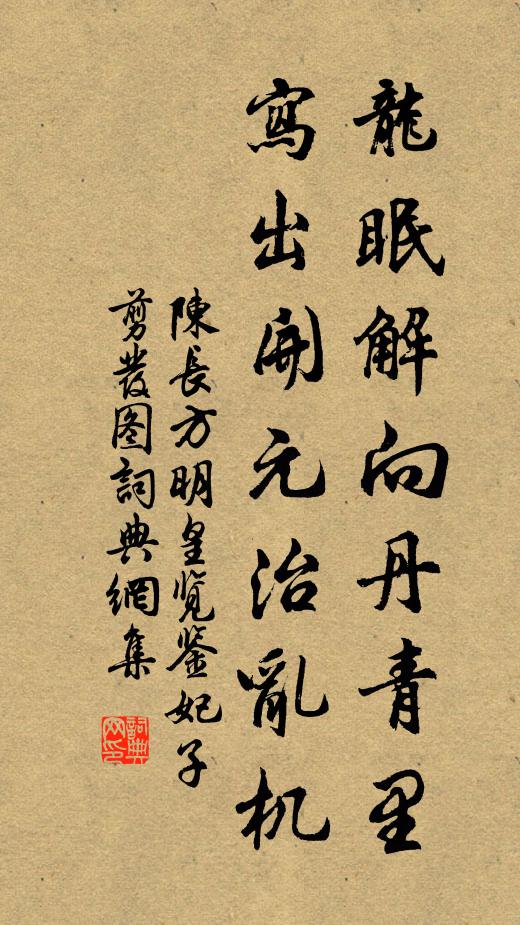 龍眠解向丹青里
寫出開元治亂机
陳長方明皇览鉴妃子
剪發图詞典網集
詞典
网印